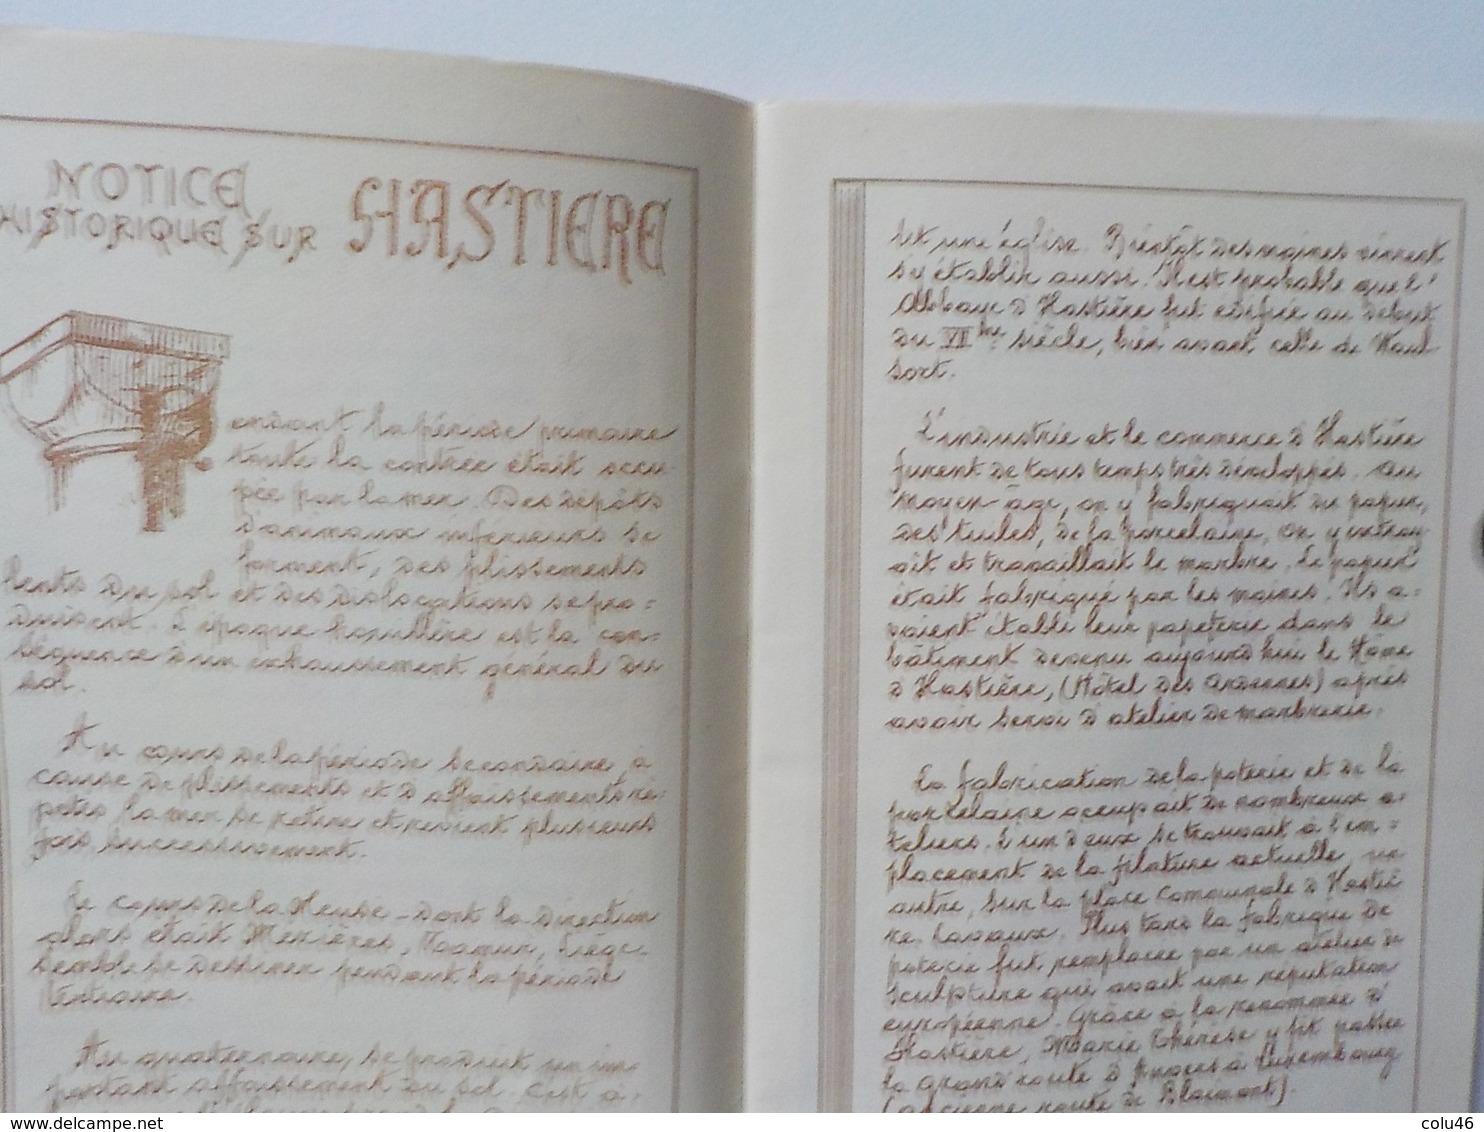 NOTICE
HISTORIQUE SUR HASTIERE
endant la période primaire
toute la contrée était occu-
pée par la mer. Des dépôts
d'animaux inférieurs se
forment, des plissements
lents du sol et des dislocations se pro=
duisent. L'époque houillère est la con=
séquence d'un exhaussement général du
sol.
Au cours de la période secondaire, à
cause de plissements et d'affaissements ré-
pétés la mer se retire et revient plusieurs
fois successivement.
Le cours de la Meuse - dont la direction
alors était Mézières, Namur, Liège -
semble se dessiner pendant la période
tertiaire.
Au quaternaire, se produit un im-
portant affaissement du sol. C'est à-
tit une église. Bientôt des moines vinrent
s'y établir aussi. Il est probable que l'
Abbaye d'Hastière fut édifiée au début
du VII me siècle, bien avant celle de Waul-
sort.
L'industrie et le commerce d'Hastière
furent de tous temps très développés. Au
moyen-âge, on y fabriquait du papier,
des tuiles, de la porcelaine, on y extray-
ait et travaillait le marbre. Le papier
était fabriqué par les moines. Ils a=
vaient établi leur papeterie dans le
bâtiment devenu aujourd'hui le Home
d'Hastière, (Hôtel des Ardennes) après
avoir servi d'atelier de marbrerie.
La fabrication de la poterie et de la
porcelaine occupait de nombreux a-
teliers. L'un d'eux se trouvait à l'em=
placement de la filature actuelle, un
autre, sur la place communale d'Hastiè
re-Lavaux. Plus tard la fabrique de
poterie fut remplacée par un atelier de
sculpture qui avait une réputation
européenne. Grâce à la renommée d'
Hastière, Marie Thérèse y fit passer
la grand'route d'Anvers à Luxembourg
(ancienne route de Blaimont).
www.delcampe.net
colu46